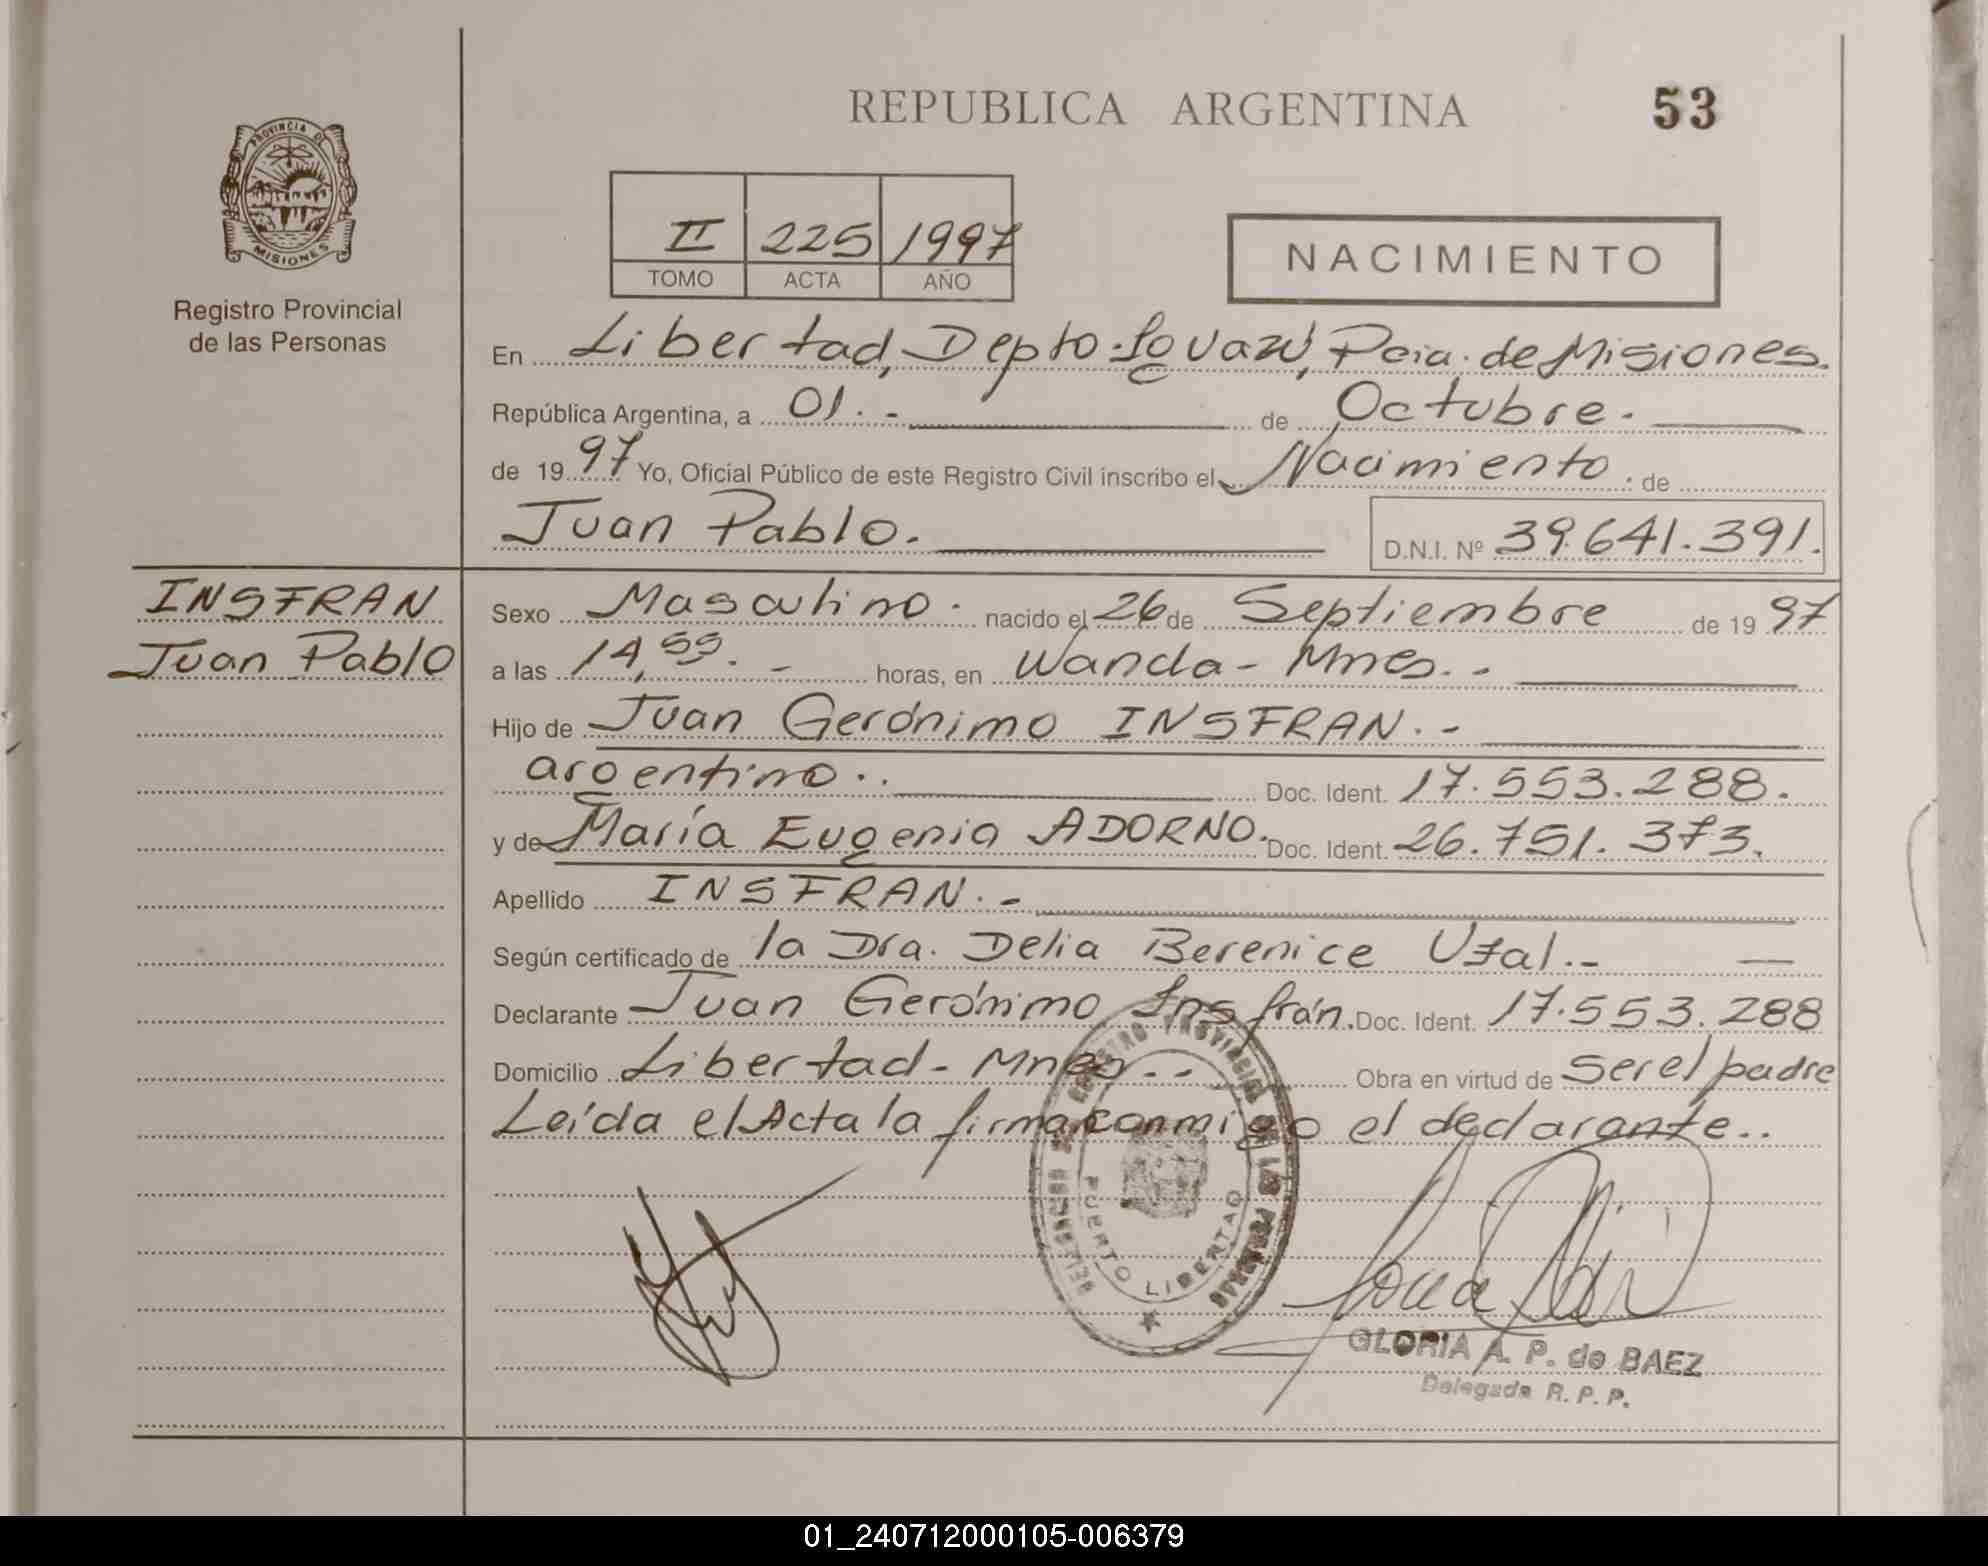 REPUBLICA ARGENTINA
53
PROVINCIA DE
MISIONES
Registro Provincial
de las Personas
II 225 1997
TOMO ACTA AÑO
NACIMIENTO
En Libertad, Depto. Iguazú, Pcia. de Misiones.
República Argentina, a 01.- de Octubre.
de 1997 Yo, Oficial Público de este Registro Civil inscribo el Nacimiento. de
Juan Pablo. D.N.I. Nº 39.641.391.
INSFRAN
Juan Pablo
Sexo Masculino. nacido el 26 de Septiembre de 1997
a las 14,55. - horas, en Wanda - Mnes. -
Hijo de Juan Gerónimo INSFRAN. -
argentino.. Doc. Ident. 17.553.288.
y de María Eugenia ADORNO. Doc. Ident. 26.751.373.
Apellido INSFRAN. -
Según certificado de la Dra. Delia Berenice Ufal.. -
Declarante Juan Gerónimo Insfrán. Doc. Ident. 17.553.288
Domicilio Libertad - Mnes.. - Obra en virtud de ser el padre
Leída el Acta la firma conmigo el declarante..
REGISTRO PROVINCIAL DE LAS PERSONAS
PUERTO LIBERTAD
GLORIA A. P. de BAEZ
Delegada R. P. P.
01_240712000105-006379